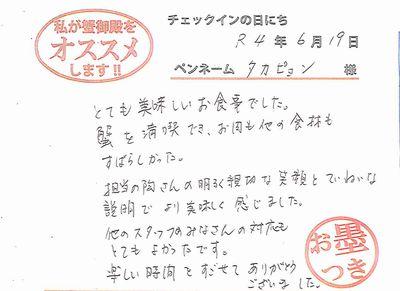 私が蟹御殿を
オススメ
します!!
チェックインの日にち
R4年6月19日
ペンネーム タカピョン 様
とても美味しいお食事でした。
蟹を満喫でき、お肉も他の食材も
すばらしかった。
担当の陶さんの明るく親切な笑顔とていねいな
説明でより美味しく感じました。
他のスタッフのみなさんの対応も
とてもよかったです。
楽しい時間をすごせてありがとう
ございました。
お墨
つき